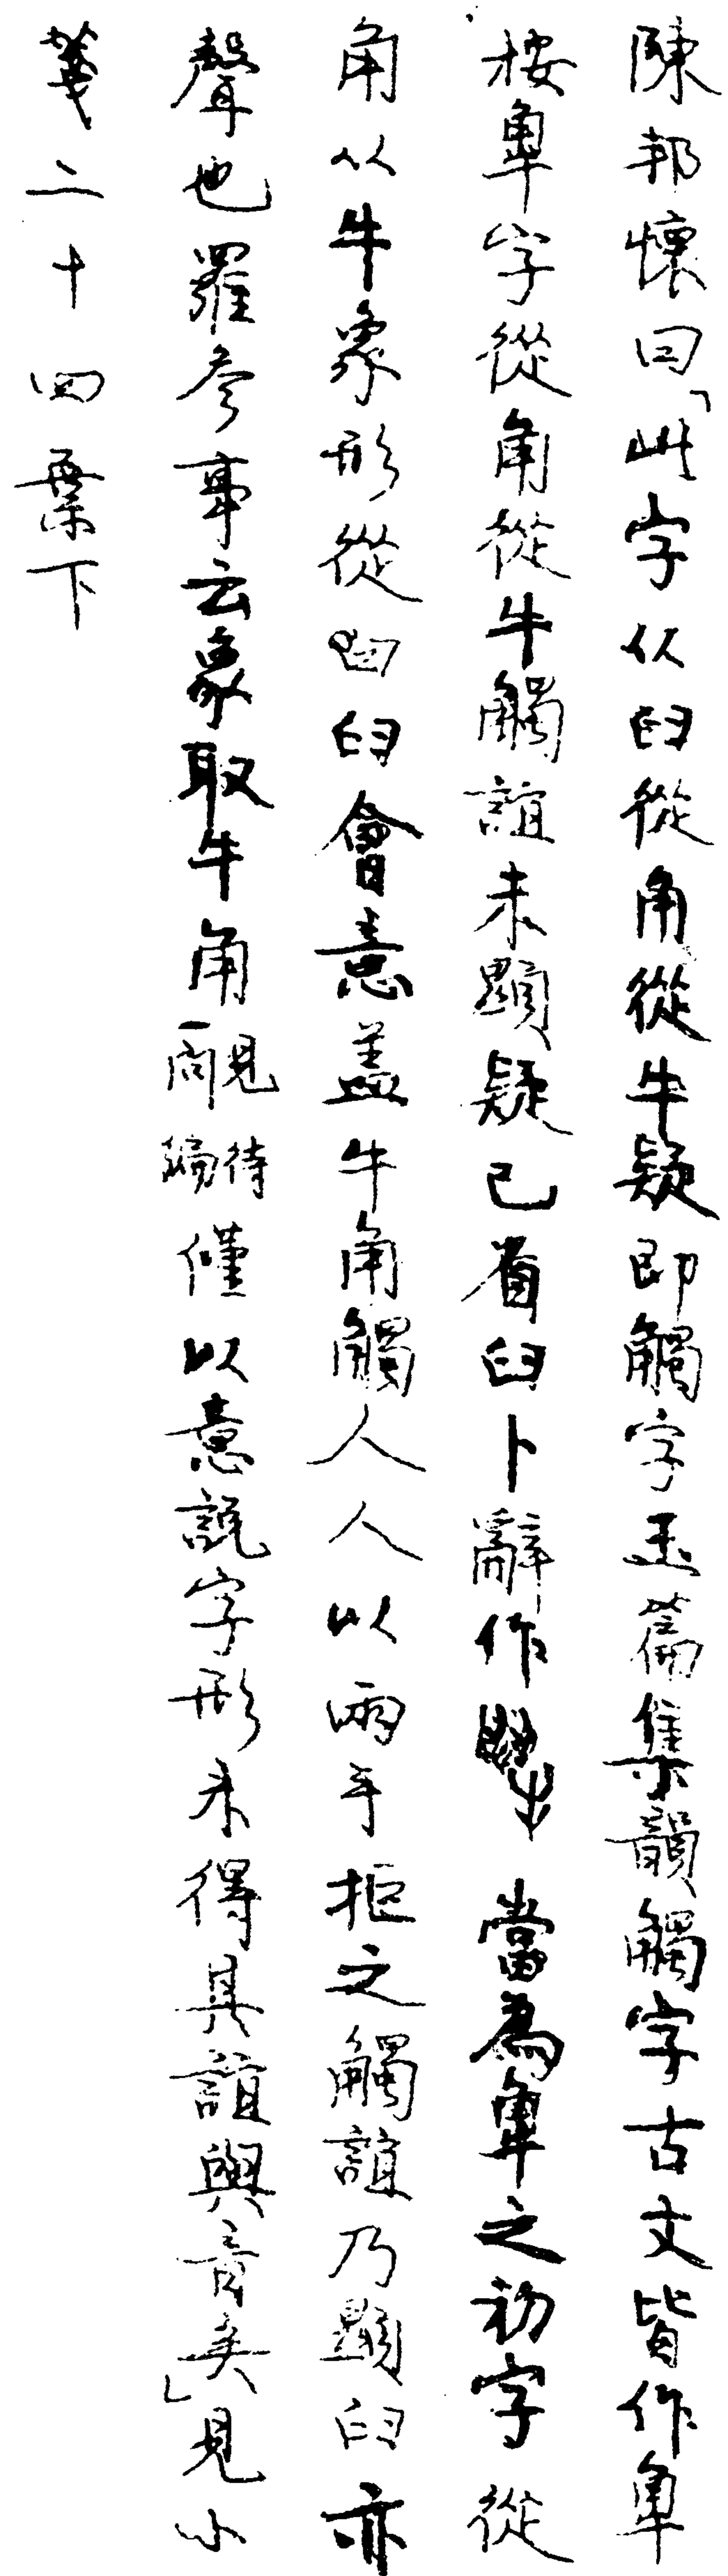 陳邦懷曰「此字从臼從角從牛疑即觸字玉篇集韻觸字古文皆作𧢻
桉𧢻字從角從牛觸誼未顯疑已省臼卜辭作 當為𧢻之初字從
角从牛象形從臼會意蓋牛角觸人人以兩手拒之觸誼乃顯臼亦
聲也羅參事云象取牛角見商待編僅以意說字形未得其誼與音矣」見小
箋二十四葉下